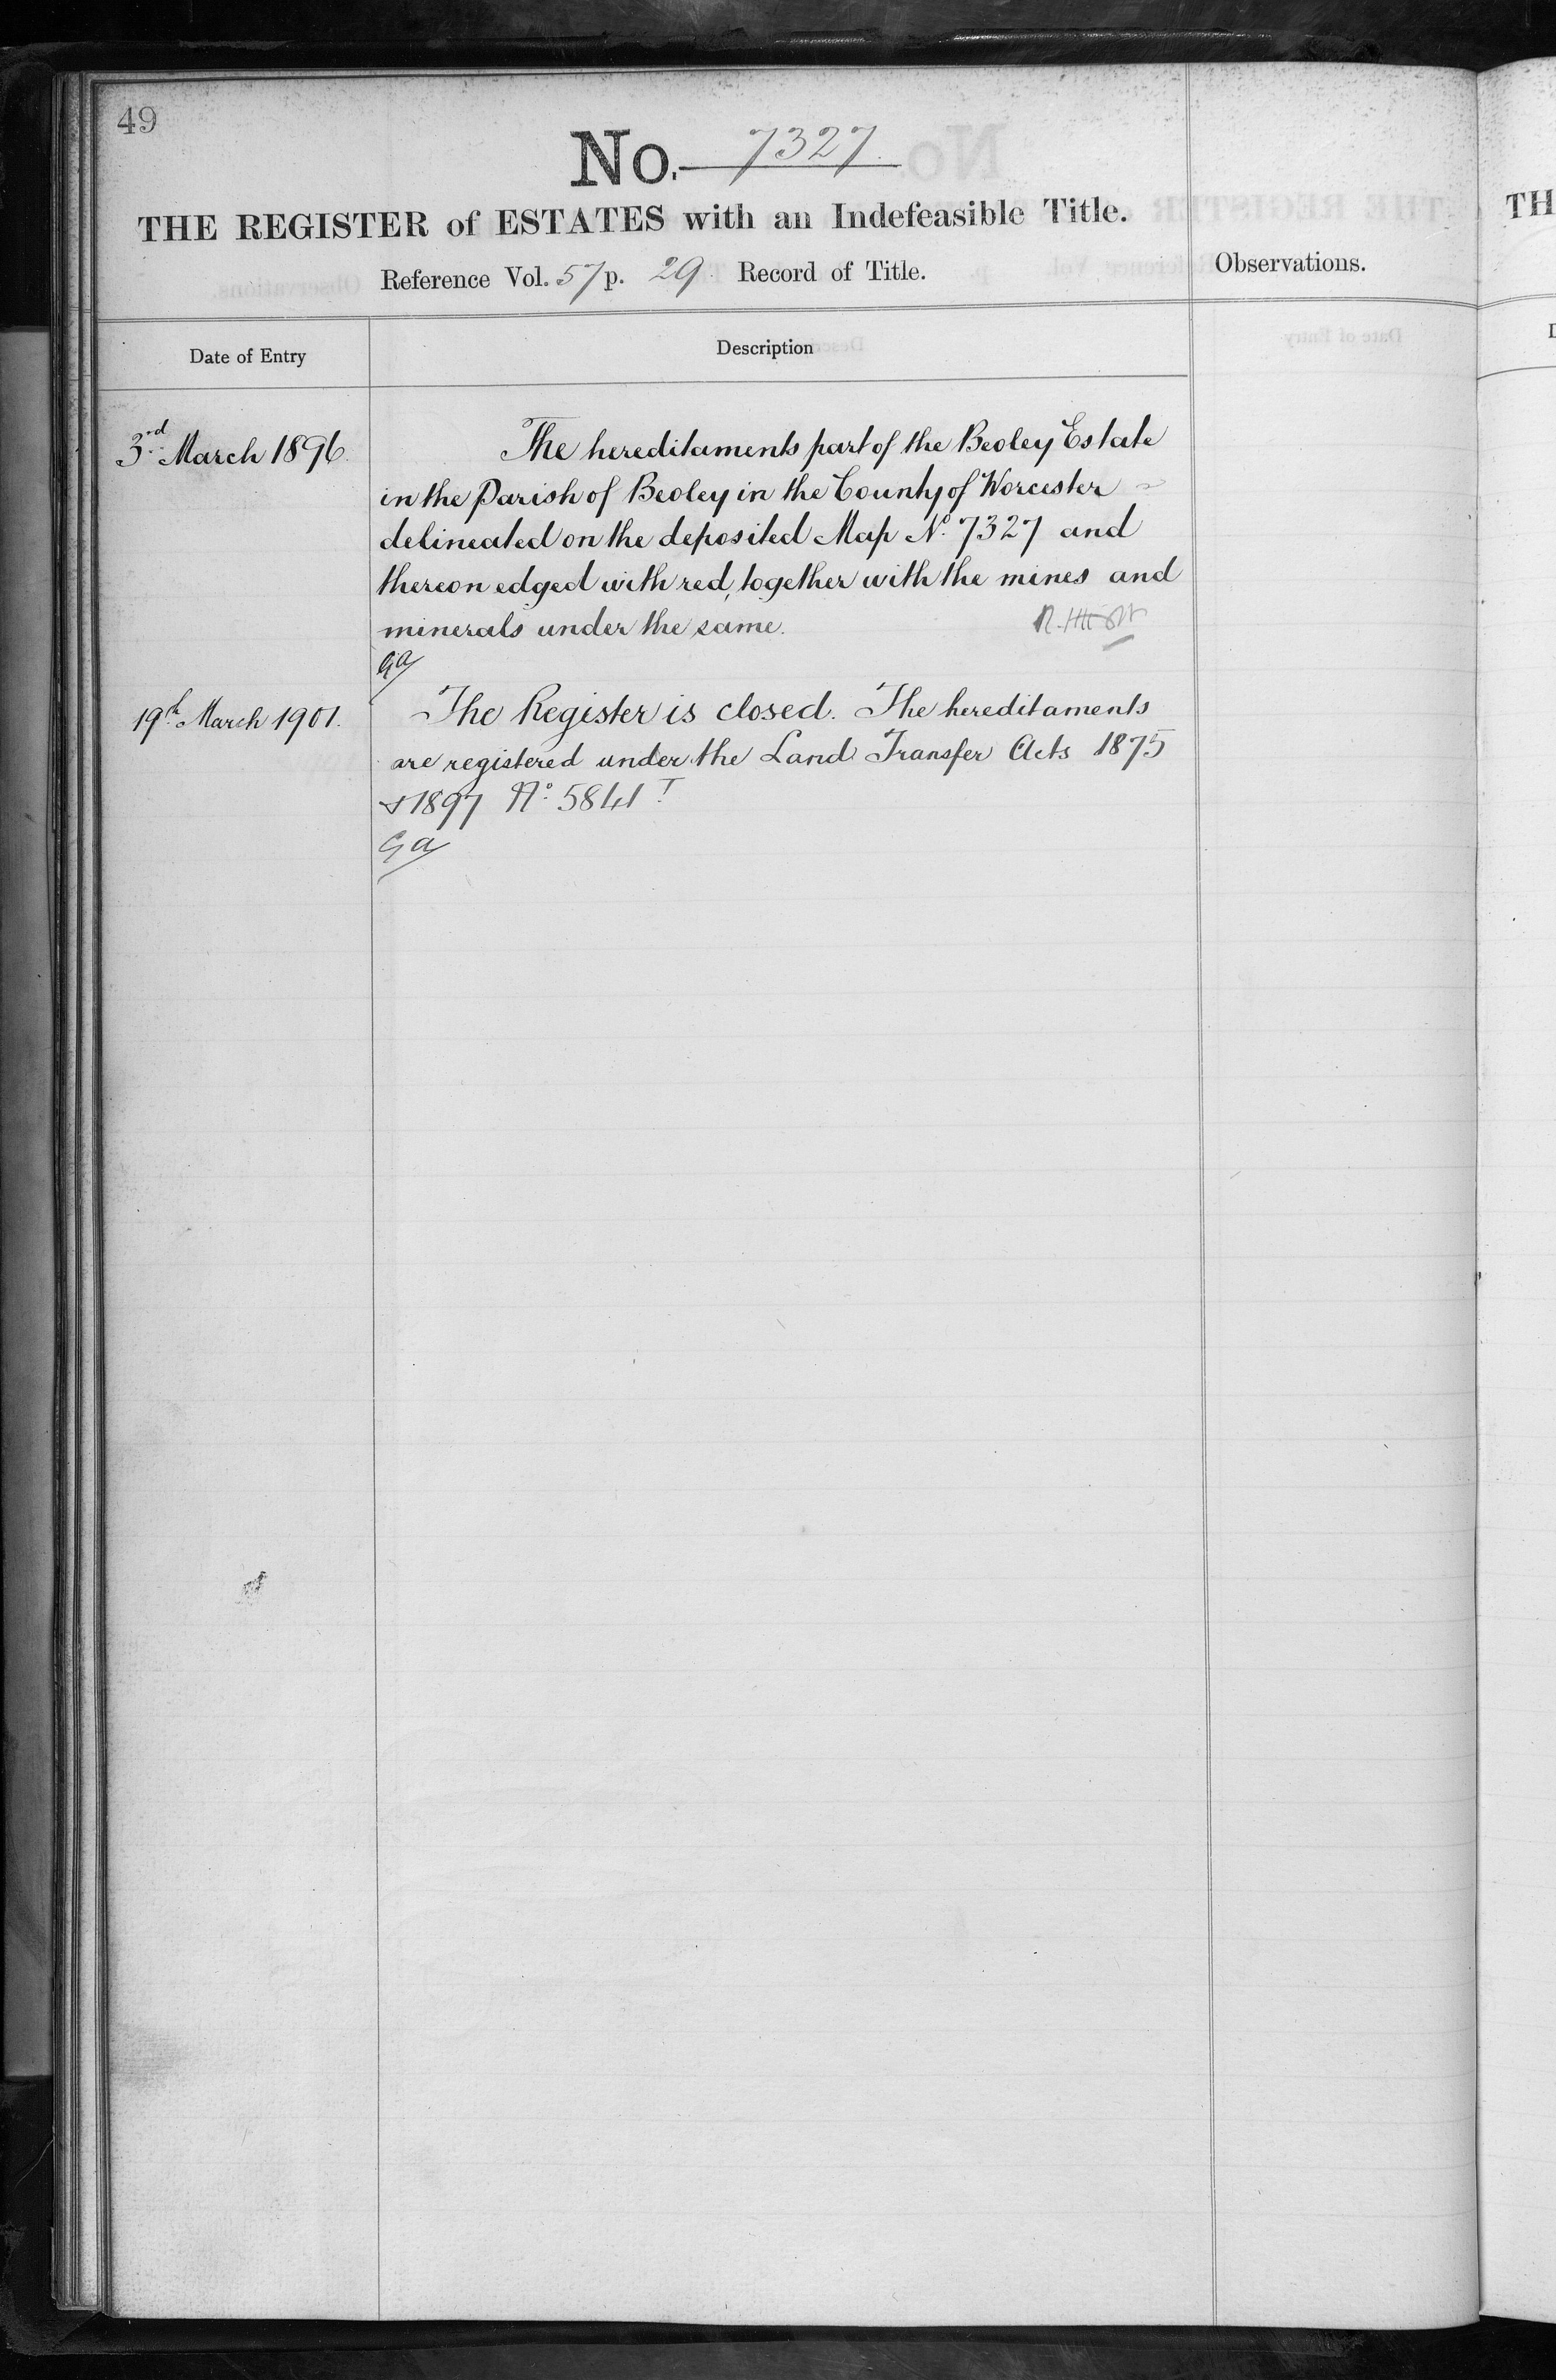 49
No. 7327.
THE REGISTER of ESTATES with an Indefeasible Title.
Reference Vol. 57 p. 29 Record of Title.
Observations.
Date of Entry
Description
3rd March 1896.
The hereditaments part of the Beoley Estate
in the Parish of Beoley in the County of Worcester
delineated on the deposited Map No. 7327 and
thereon edged with red, together with the mines and
minerals under the same.
GA
19th March 1901.
The Register is closed. The hereditaments
are registered under the Land Transfer Acts 1875
& 1897 No. 5841
GA
TH